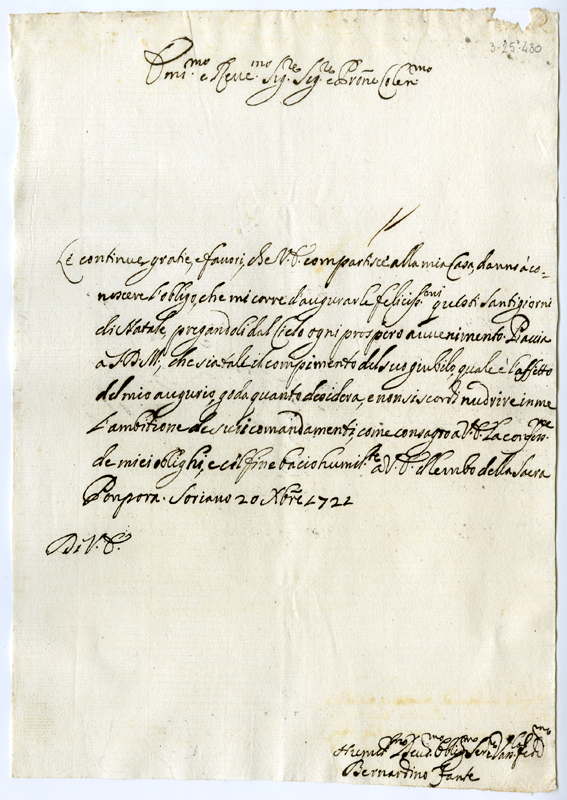 3-25-480
Em.mo e Reve.mo Sig.re Sig.re e Prõne Colen.mo
Le continue gratie, e favori, che V.E. compartisce alla mia Casa, danno à co-
noscere l'obligo, che mi corre d'augurarle felicis.mi questi Santi giorni
di Natale, pregandoli dal Cielo ogni prospero avvenimento. Piaccia
a S.D.M., che sia tale il compimento del suo giubilo, quale è l'affetto
del mio augurio, goda quanto desidera, e non si scordi nudrire in me
l'ambitione de suoi comandamenti, come consagro a V.E. la
de miei oblighi, e col fine bacio humil.te a V.E. il lembo della Sacra
Porpora. Soriano 20 Xbre 1721
Di V.E.
Humil.mo Dev.mo Oblig.mo Ser.re
Bernardino Fante